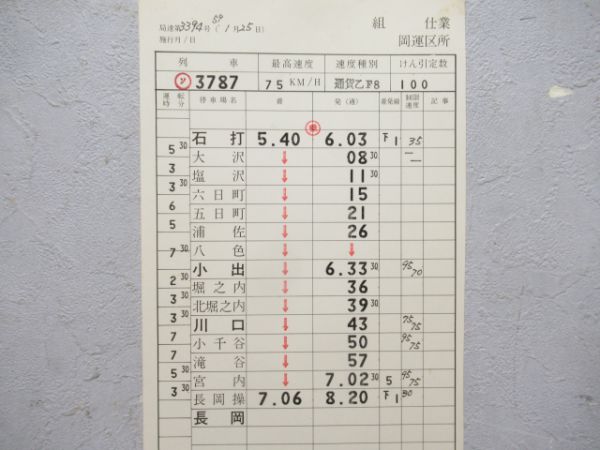 局達第3394号(59 1月25日)
施行月/日
組 仕業
岡運区所
列 車 最高速度 速度種別 けん引定数
3787 75 KM/H 通貨乙F8 100
運転時分 停車場名 着 発(通) 着発線 制限速度 記事
石打 5.40 6.03 下1 35
5 30
大沢 ↓ 08 30
3
塩沢 ↓ 11 30
3 30
六日町 ↓ 15
6
五日町 ↓ 21
5
浦佐 ↓ 26
八色 ↓ ↓
7 30
小出 ↓ 6.33 30 95/70
2 30
堀之内 ↓ 36
3 30
北堀之内 ↓ 39 30
3 30
川口 ↓ 43 75/75
7
小千谷 ↓ 50 95/75
7
滝谷 ↓ 57
5 30
宮内 ↓ 7.02 30 5 95/75
3 30
長岡操 7.06 8.20 下1 30
長岡